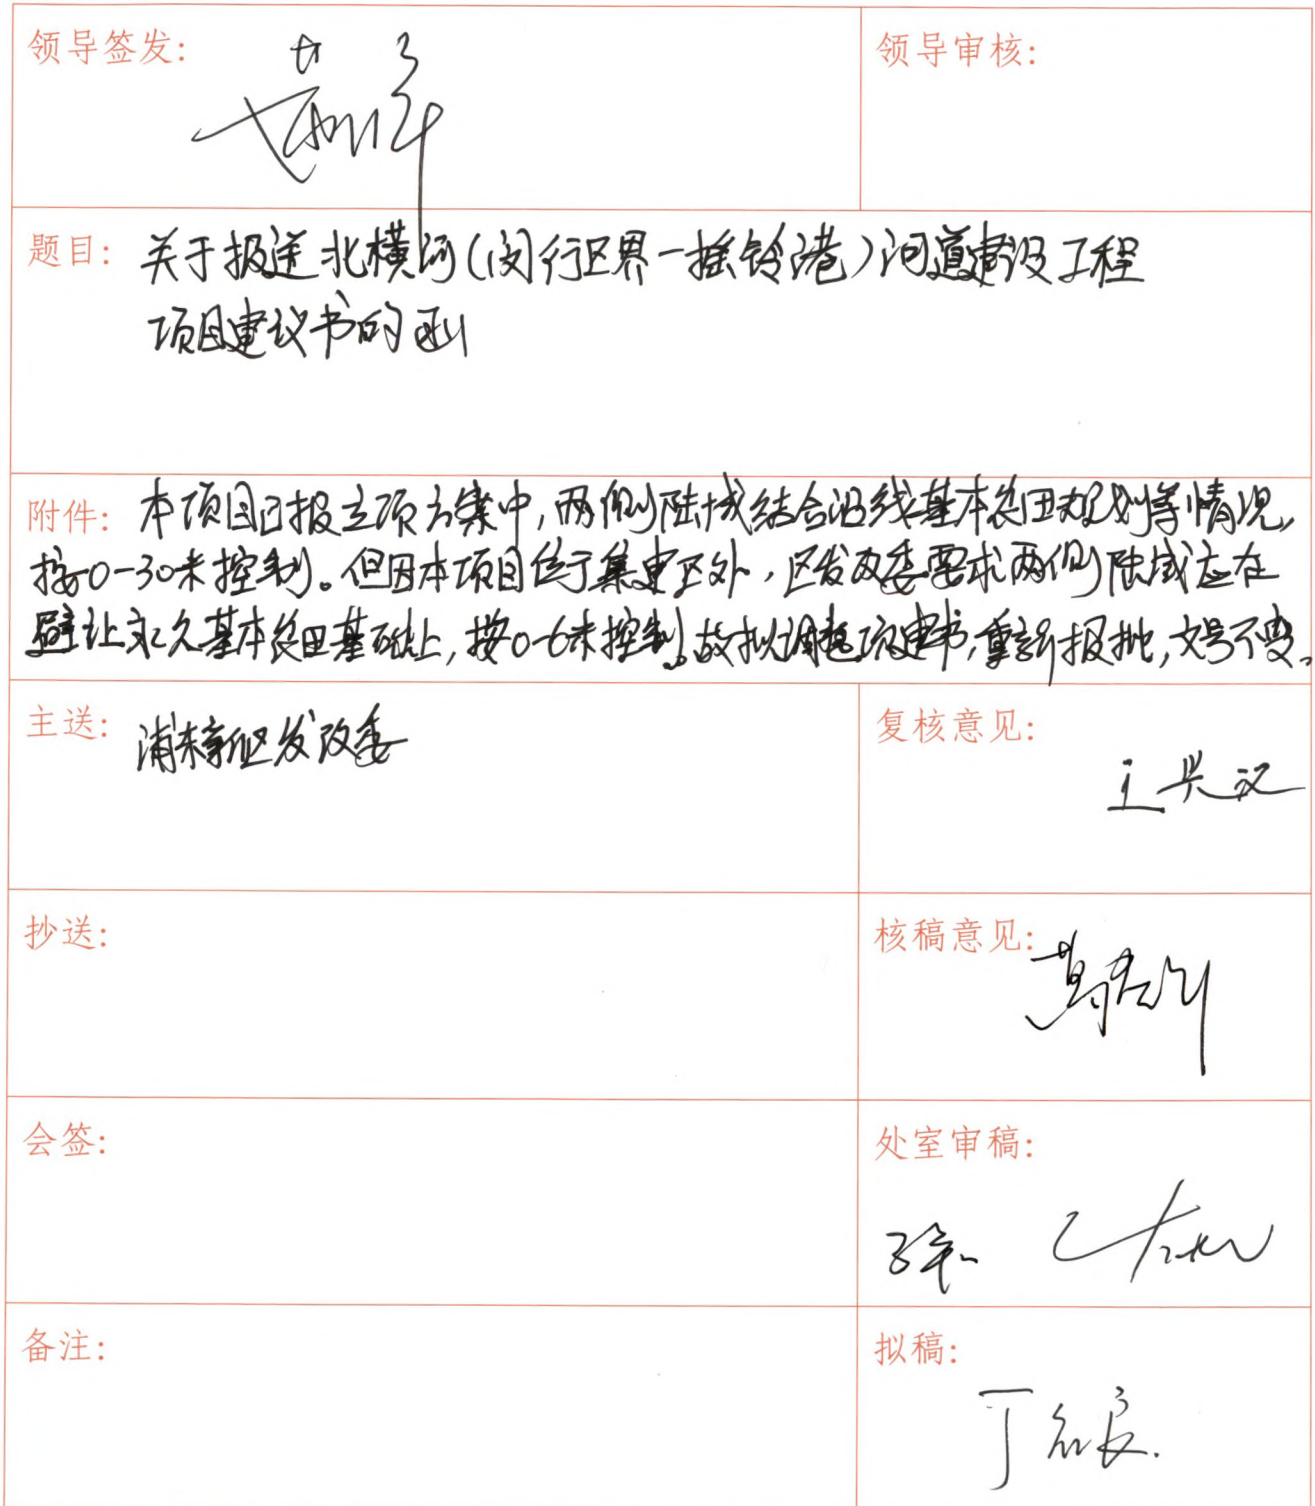 领导签发:
领导审核:
题目: 关于报送北横河(闵行区界-摇铃港)河道建设工程
项目建议书的函
附件: 本项目已报立项方案中,两侧陆域结合沿线基本农田规划等情况,
按0-30米控制。但因本项目位于集建区外,区发改委要求两侧陆域应在
避让永久基本农田基础上,按0-6米控制。故拟调整项建书,重新报批,文号不变。
主送: 浦东新区发改委
复核意见:
王兴汉
抄送:
核稿意见:
会签:
处室审稿:
备注:
拟稿: